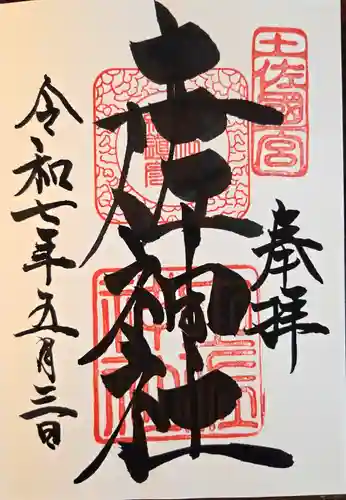 土佐國一宮
奉拝
土佐神社
令和七年五月三日